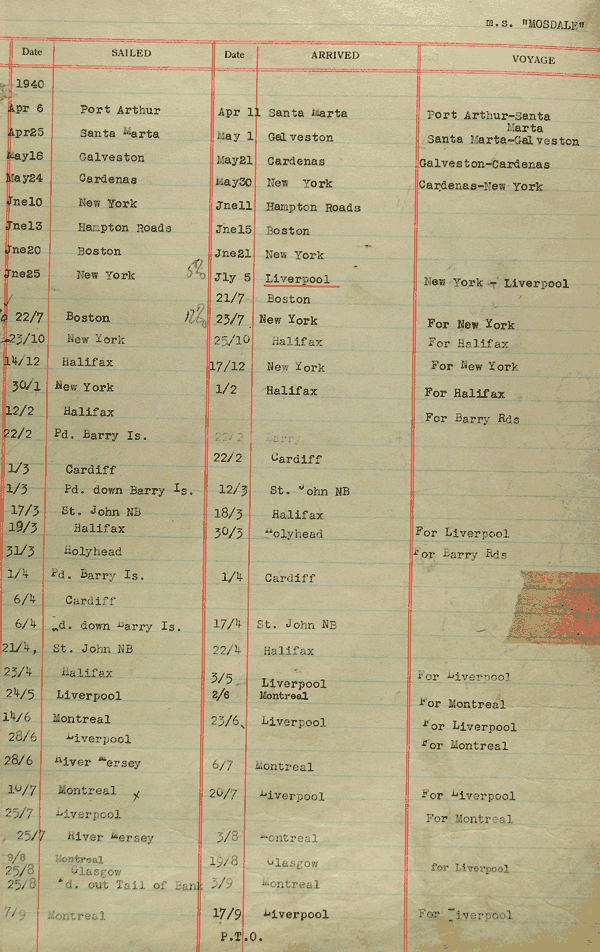 m.s. "MOSDALE"
Date SAILED Date ARRIVED VOYAGE
1940
Apr 6 Port Arthur Apr 11 Santa Marta Port Arthur-Santa Marta
Apr25 Santa Marta May 1 Galveston Santa Marta-Galveston
May18 Galveston May21 Cardenas Galveston-Cardenas
May24 Cardenas May30 New York Cardenas-New York
Jne10 New York Jne11 Hampton Roads
Jne13 Hampton Roads Jne15 Boston
Jne20 Boston Jne21 New York
Jne25 New York Jly 5 Liverpool New York - Liverpool
21/7 Boston
22/7 Boston 23/7 New York For New York
23/10 New York 25/10 Halifax For Halifax
14/12 Halifax 17/12 New York For New York
30/1 New York 1/2 Halifax For Halifax
12/2 Halifax For Barry Rds
22/2 Pd. Barry Is. 22/2 Barry
22/2 Cardiff
1/3 Cardiff
1/3 Pd. down Barry Is. 12/3 St. John NB
17/3 St. John NB 18/3 Halifax
19/3 Halifax 30/3 Holyhead For Liverpool
31/3 Holyhead For Barry Rds
1/4 Pd. Barry Is. 1/4 Cardiff
6/4 Cardiff
6/4 Pd. down Barry Is. 17/4 St. John NB
21/4, St. John NB 22/4 Halifax
23/4 Halifax 3/5 Liverpool For Liverpool
24/5 Liverpool 2/6 Montreal For Montreal
14/6 Montreal 23/6 Liverpool For Liverpool
28/6 Liverpool For Montreal
28/6 River Mersey 6/7 Montreal
10/7 Montreal x 20/7 Liverpool For Liverpool
25/7 Liverpool For Montreal
25/7 River Mersey 3/8 Montreal
9/8 Montreal 19/8 Glasgow for Liverpool
25/8 Glasgow
25/8 Pd. out Tail of Bank 3/9 Montreal
7/9 Montreal 17/9 Liverpool For Liverpool
P.T.O.